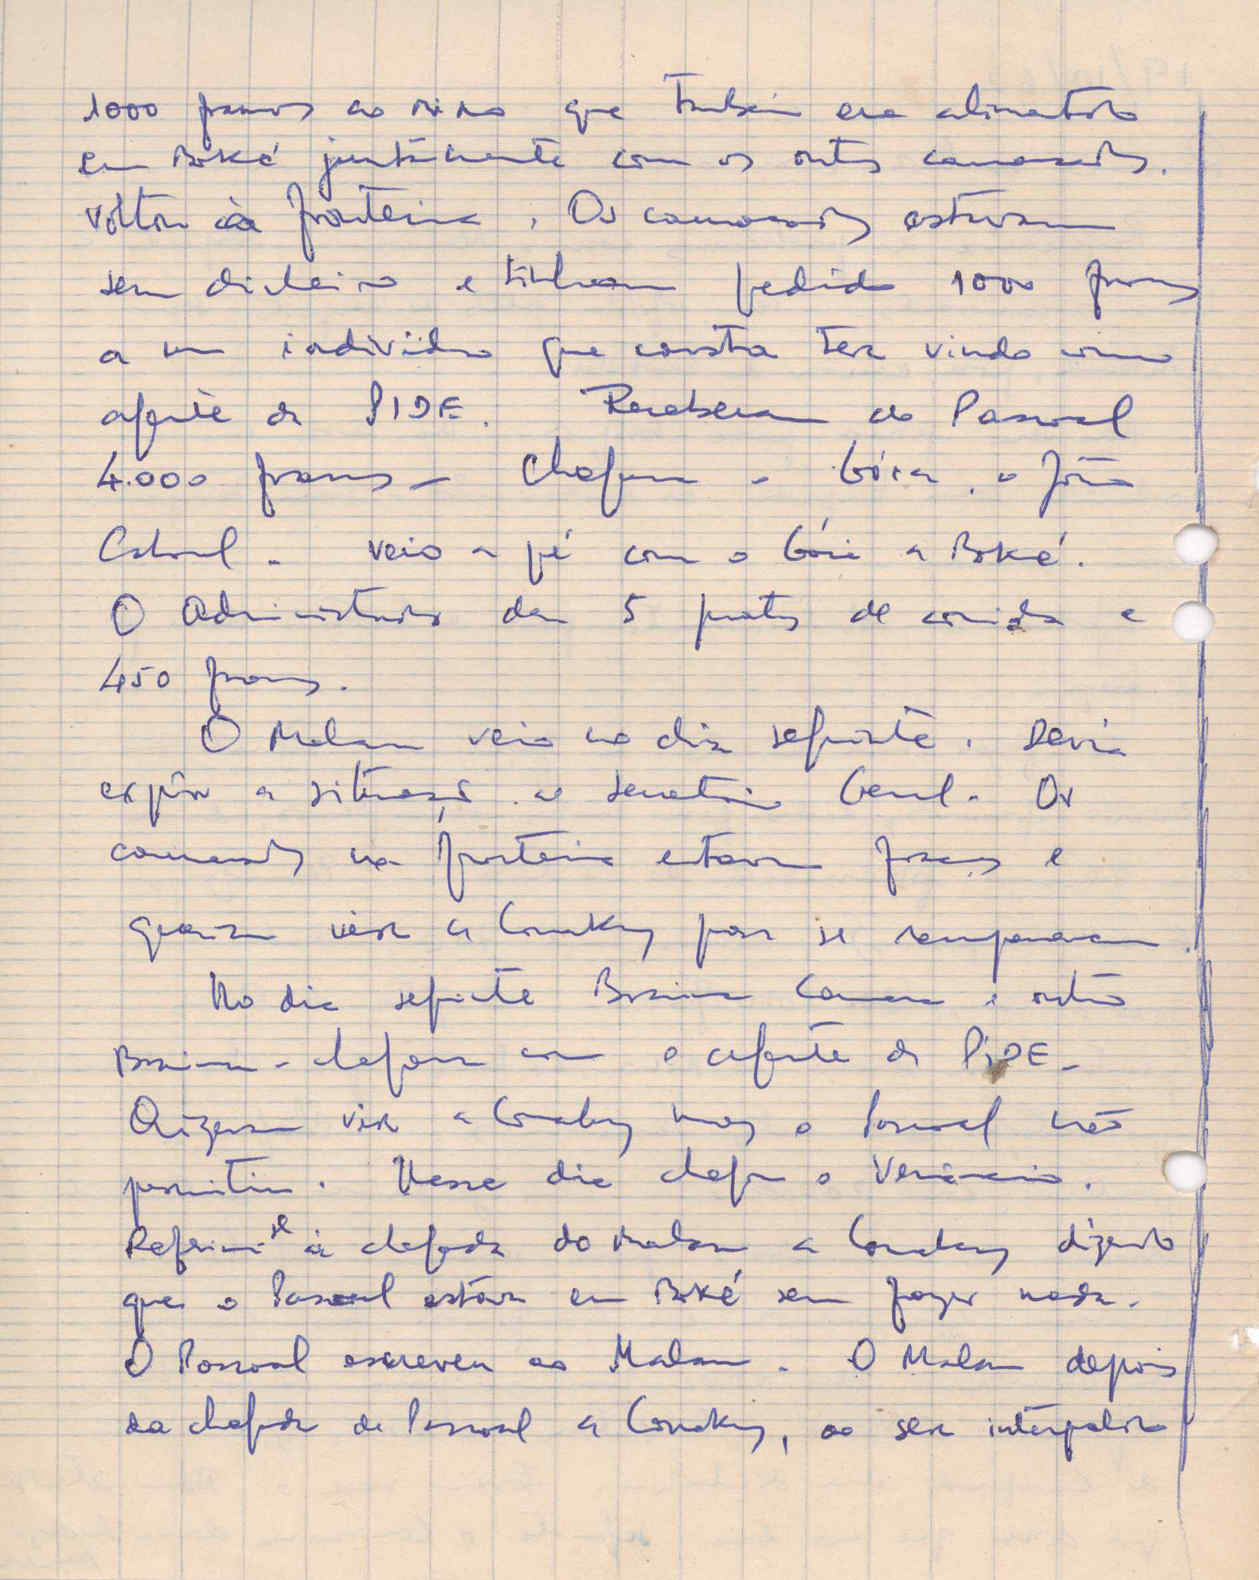 1000 francos ao Nino que também era alimentado
em Boké juntamente com os outros camaradas.
Voltou à fronteira. Os camaradas estavam
sem dinheiro e tinham pedido 1000 francos
a um indivíduo que consta ter vindo como
agente da PIDE. Receberam do Pascoal
4.000 francos - Chegou o Bóia, o João
Cabral. veio a pé com o Bóia a Boké.
O Administrador deu 5 pratos de comida e
450 francos.
O Malam veio no dia seguinte. Devia
expôr a situação ao Secretário Geral. Os
camaradas na fronteira estavam fracos e
queriam vir a Conakry para se recuperarem.
No dia seguinte Braima Camara e outro
Braima - chegaram com o agente da PIDE-
Quizeram vir a Conakry mas o Pascoal não
permitiu. Nesse dia chegou o Venâncio.
Referiu-se à chegada do Malam a Conakry dizendo
que o Pascoal estava em Boké sem fazer nada.
O Pascoal escreveu ao Malam. O Malam depois
da chegada de Pascoal a Conakry, ao ser interpelado